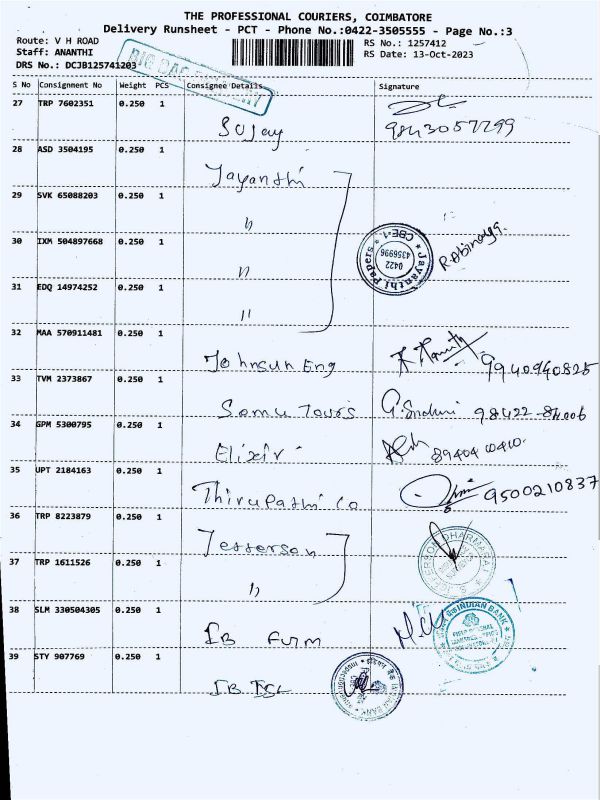 THE PROFESSIONAL COURIERS, COIMBATORE
Delivery Runsheet - PCT - Phone No.:0422-3505555 - Page No.:3
Route: V H ROAD
Staff: ANANTHI
DRS No.: DCJB125741203
RS No.: 1257412
RS Date: 13-Oct-2023
BIG BAG
S No Consignment No Weight PCS Consignee Details Signature
27 TRP 7602351 0.250 1
Sujay 9843057299
28 ASD 3504195 0.250 1
Jayanthi
29 SVK 65088203 0.250 1
"
30 IXM 504897668 0.250 1
"
Jayanthi Papers * CBE-1 *
0422
4356996
R.Abinaya.
31 EDQ 14974252 0.250 1
"
32 MAA 570911481 0.250 1
Johnsun Eng 9940940825
33 TVM 2373867 0.250 1
Somu Tours 98422-84006
34 GPM 5300795 0.250 1
Elixir
35 UPT 2184163 0.250 1
Thirupathi Co 9500210837
36 TRP 8223879 0.250 1
Jefferson
37 TRP 1611526 0.250 1
"
38 SLM 330504305 0.250 1
IB
INDIAN BANK
39 STY 907769 0.250 1
IB
INDIAN BANK